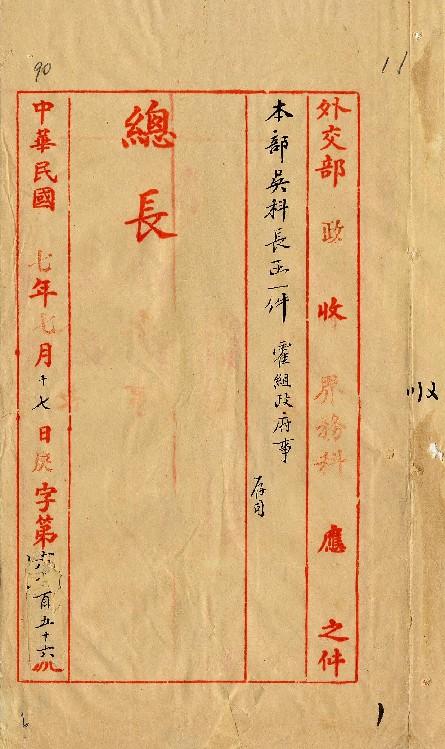 11
90
外交部 政 收 界務科 應 之件
本部吳科長函一件 霍組政府事
存司
總長
中華民國 七年七月十七日 字第 百五十六號
收